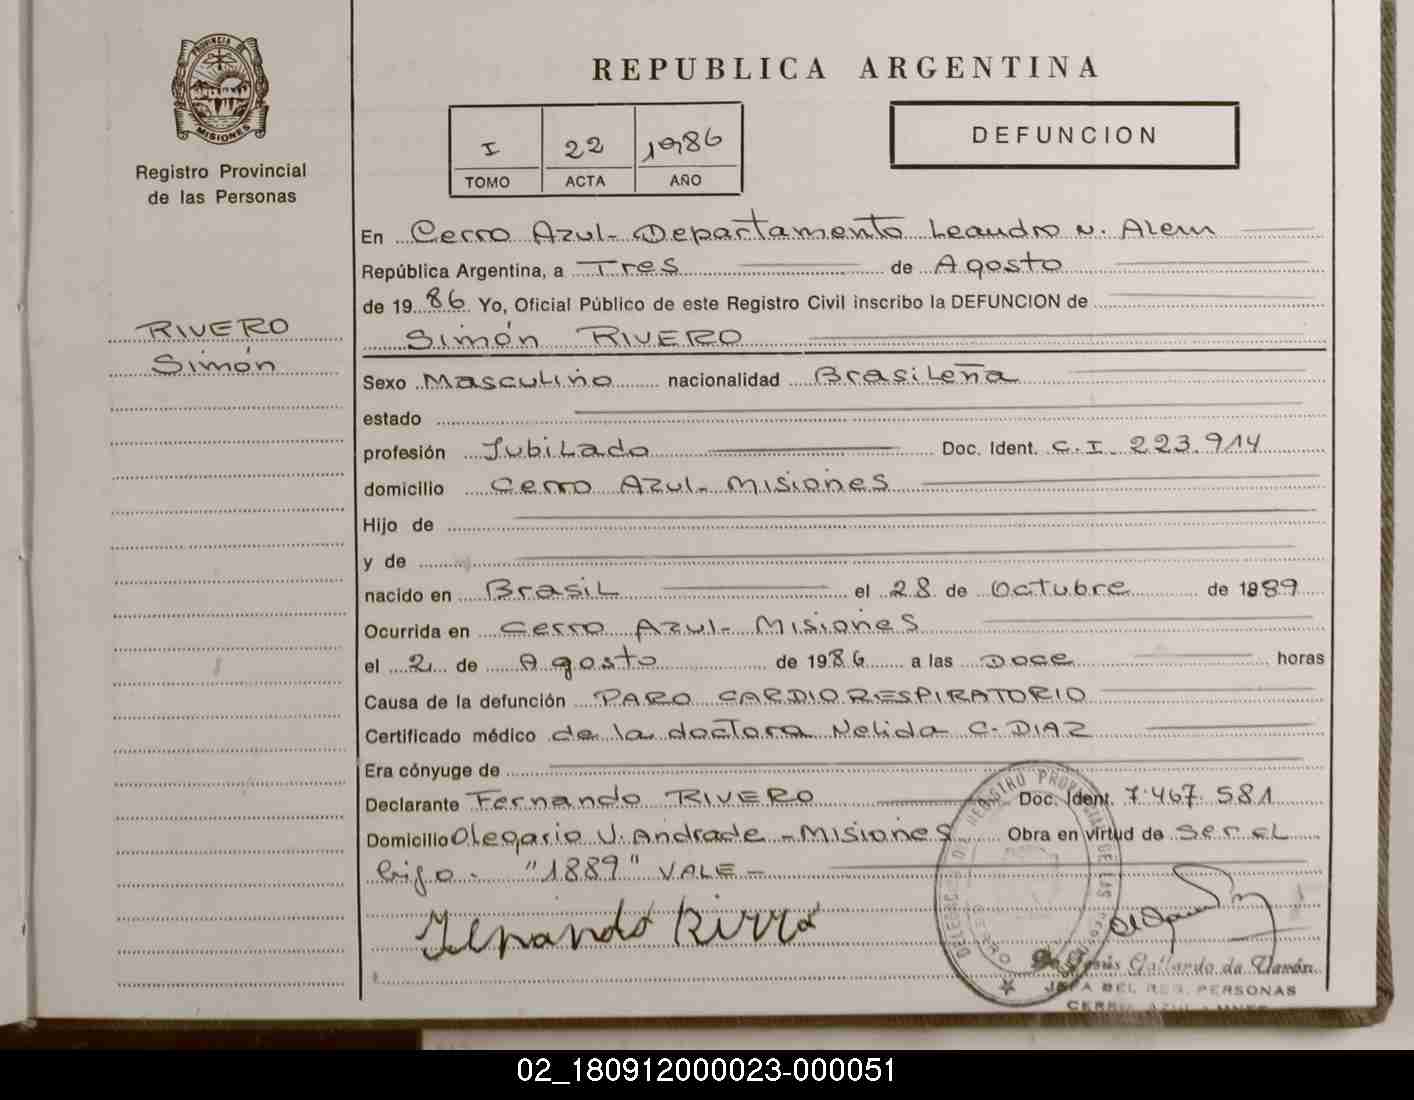 PROVINCIA DE
MISIONES
Registro Provincial
de las Personas
RIVERO
Simón
REPUBLICA ARGENTINA
I 22 1986
TOMO ACTA AÑO
DEFUNCION
En Cerro Azul - Departamento Leandro N. Alem
República Argentina, a Tres de Agosto
de 1986 Yo, Oficial Público de este Registro Civil inscribo la DEFUNCION de
Simón RIVERO
Sexo Masculino nacionalidad Brasileña
estado
profesión Jubilado Doc. Ident. C.I. 223.914
domicilio Cerro Azul - Misiones
Hijo de
y de
nacido en Brasil el 28 de Octubre de 1889
Ocurrida en Cerro Azul - Misiones
el 2 de Agosto de 1986 a las Doce horas
Causa de la defunción PARO CARDIORESPIRATORIO
Certificado médico de la doctora Nelida C. DIAZ
Era cónyuge de
Declarante Fernando RIVERO Doc. Ident. 7.467.581
Domicilio Olegario V. Andrade - Misiones Obra en virtud de ser el
hijo - "1889" VALE -
Fernando Rivero
DELEGACION DEL REGISTRO PROVINCIAL DE LAS
Jesús Gallardo de
JEFA DEL REG. PERSONAS
CERRO AZUL - MNES
02_180912000023-000051